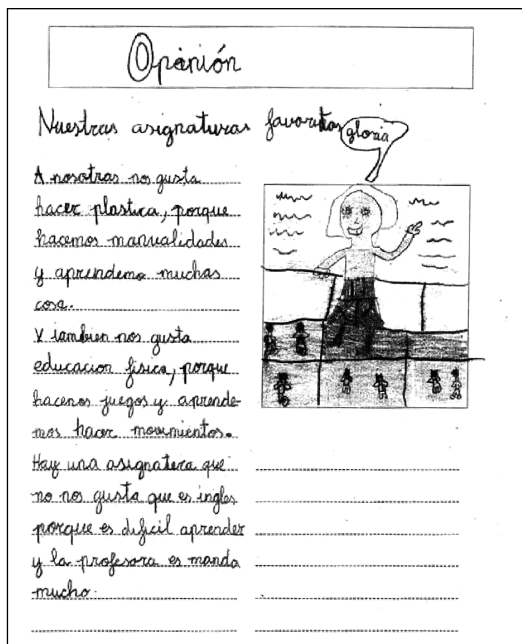 Opinión
Nuestras asignaturas favoritas
gloria
A nosotras nos gusta
hacer plastica, porque
hacemos manualidades
y aprendemo muchas
cosa.
Y tambien nos gusta
educacion fisica, porque
hacenos juegos y aprende-
mos hacer movimientos.
Hay una asignatera que
no nos gusta que es ingles
porque es dificil aprender
y la profesora es manda
mucho.